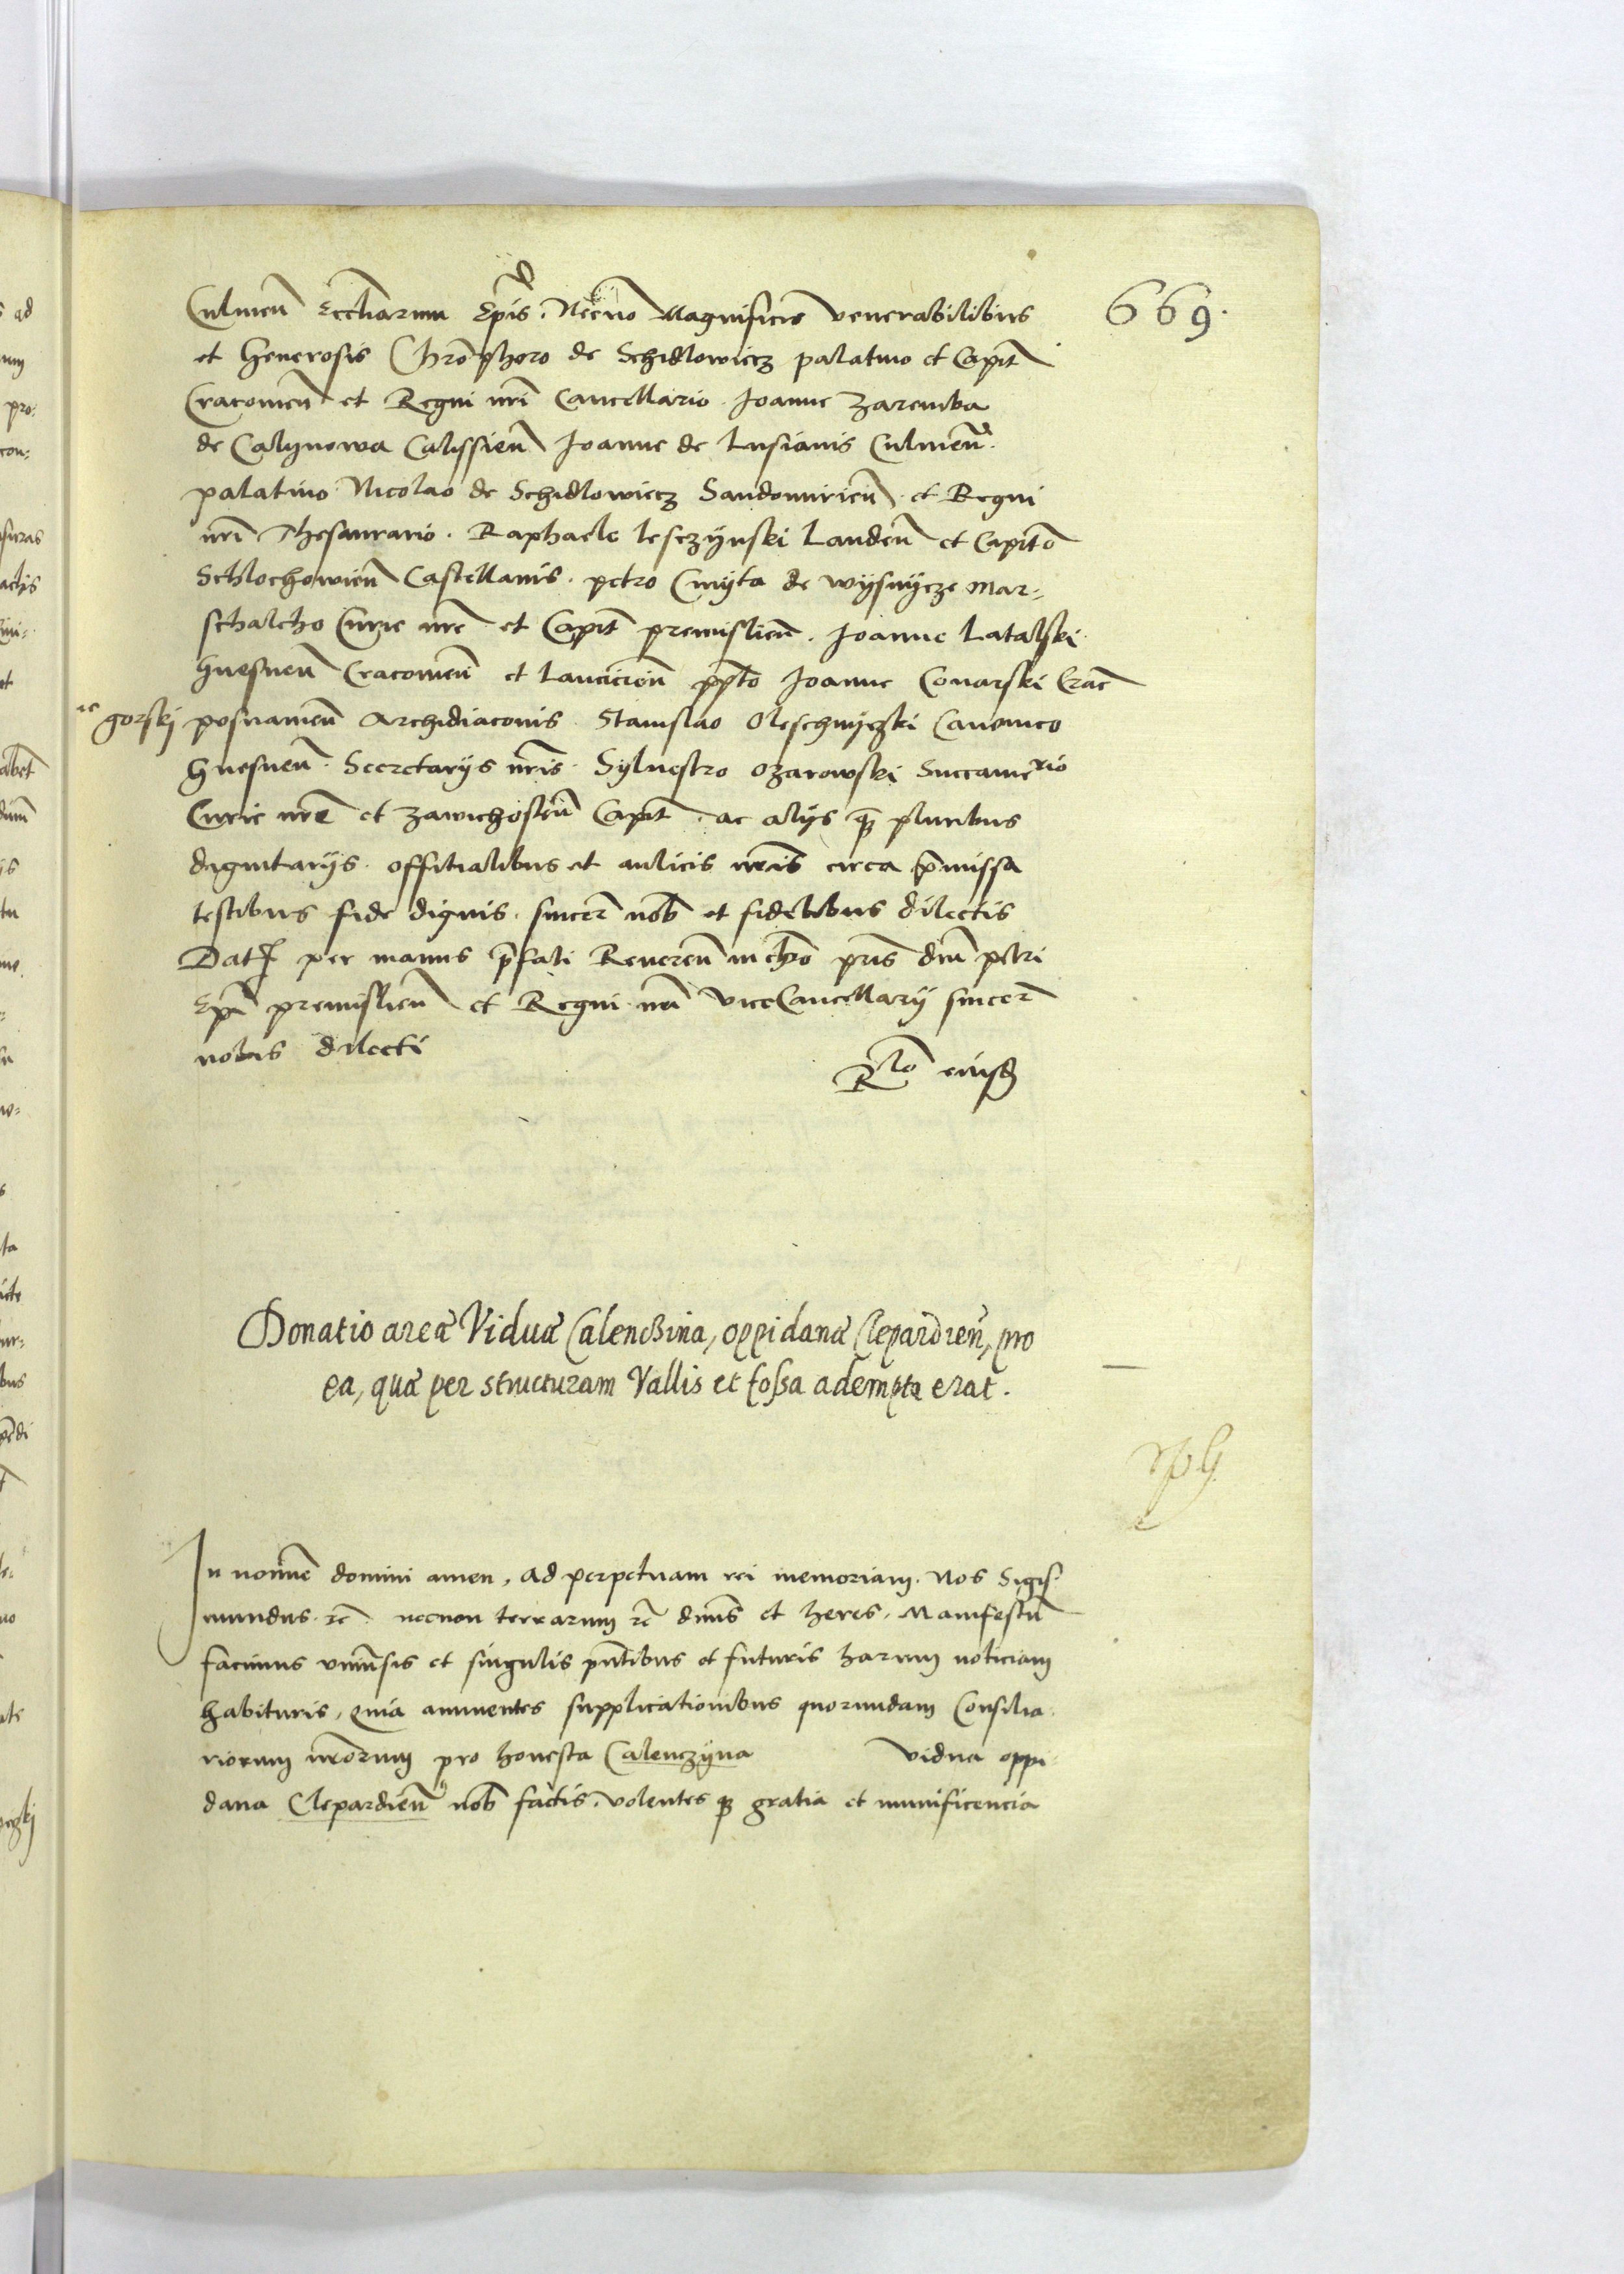 669.
Culmeñ Eccliarum Ep̃is. Necño Magnificis venerabilibus
et Generosis Chrõphoro de Schidlowiecz palatino et Capit̃
Cracovieñ et Regni nr̃i Cancellario. Joanne Zaremba
de Calynowa Calissieñ Joanne de Lusianis Culmeñ.
palatino Nicolao de Schidlowiecz Sandomirieñ. et Regni
nr̃i Thesaurario. Raphaele lesczynski Landeñ et Capitõ
Schlochowieñ Castellanis. petro Cmyta de wysnycze Mar=
schalcho Curie nr̃e et Capit̃ premislieñ. Joanne Latalski
Gnesneñ Cracovieñ et Lancicieñ pp̃to Joanne Conarski Crac̃
gorski posnanieñ Archidiaconis. Stanislao Oleschnyczki Canonico
Gnesneñ. Secretarys nr̃is. Sylvestro Ozarowski Succamerio
Curie nr̃e et Zawichosteñ Capit̃. ac alys q̃ pluribus
dignitarys. offitialibus et aulicis nr̃is circa p̃missa
testibus fide dignis. sincer̃ nob̃ et fidelibus dilectis
Dat̃ per manus p̃fati Revereñ in chr̃o pr̃is dñi petri
Ep̃i premislieñ et Regni nr̃i ViceCancellary sincer̃
nobis dilecti
Rlo eiusd
Donatio areæ Viduæ Calenczina, oppidanæ Clepardień, pro
ea, quæ per structuram Vallis et fossa adempta erat.
In nomĩe domini amen, ad perpetuam rei memoriam. Nos Sigis=
mundus. rc̃. necnon terrarum rc̃ dñus et heres. Manifestũ
facimus uniṽsis et singulis pñtibus et futuris harum noticiam
habituris, quia annuentes supplicationibus quorundam Consilia=
riorum nr̃orum pro honesta Calenczyna vidua oppi=
dana Clepardieñ nob̃ factis. volentes q gratia et munificencia